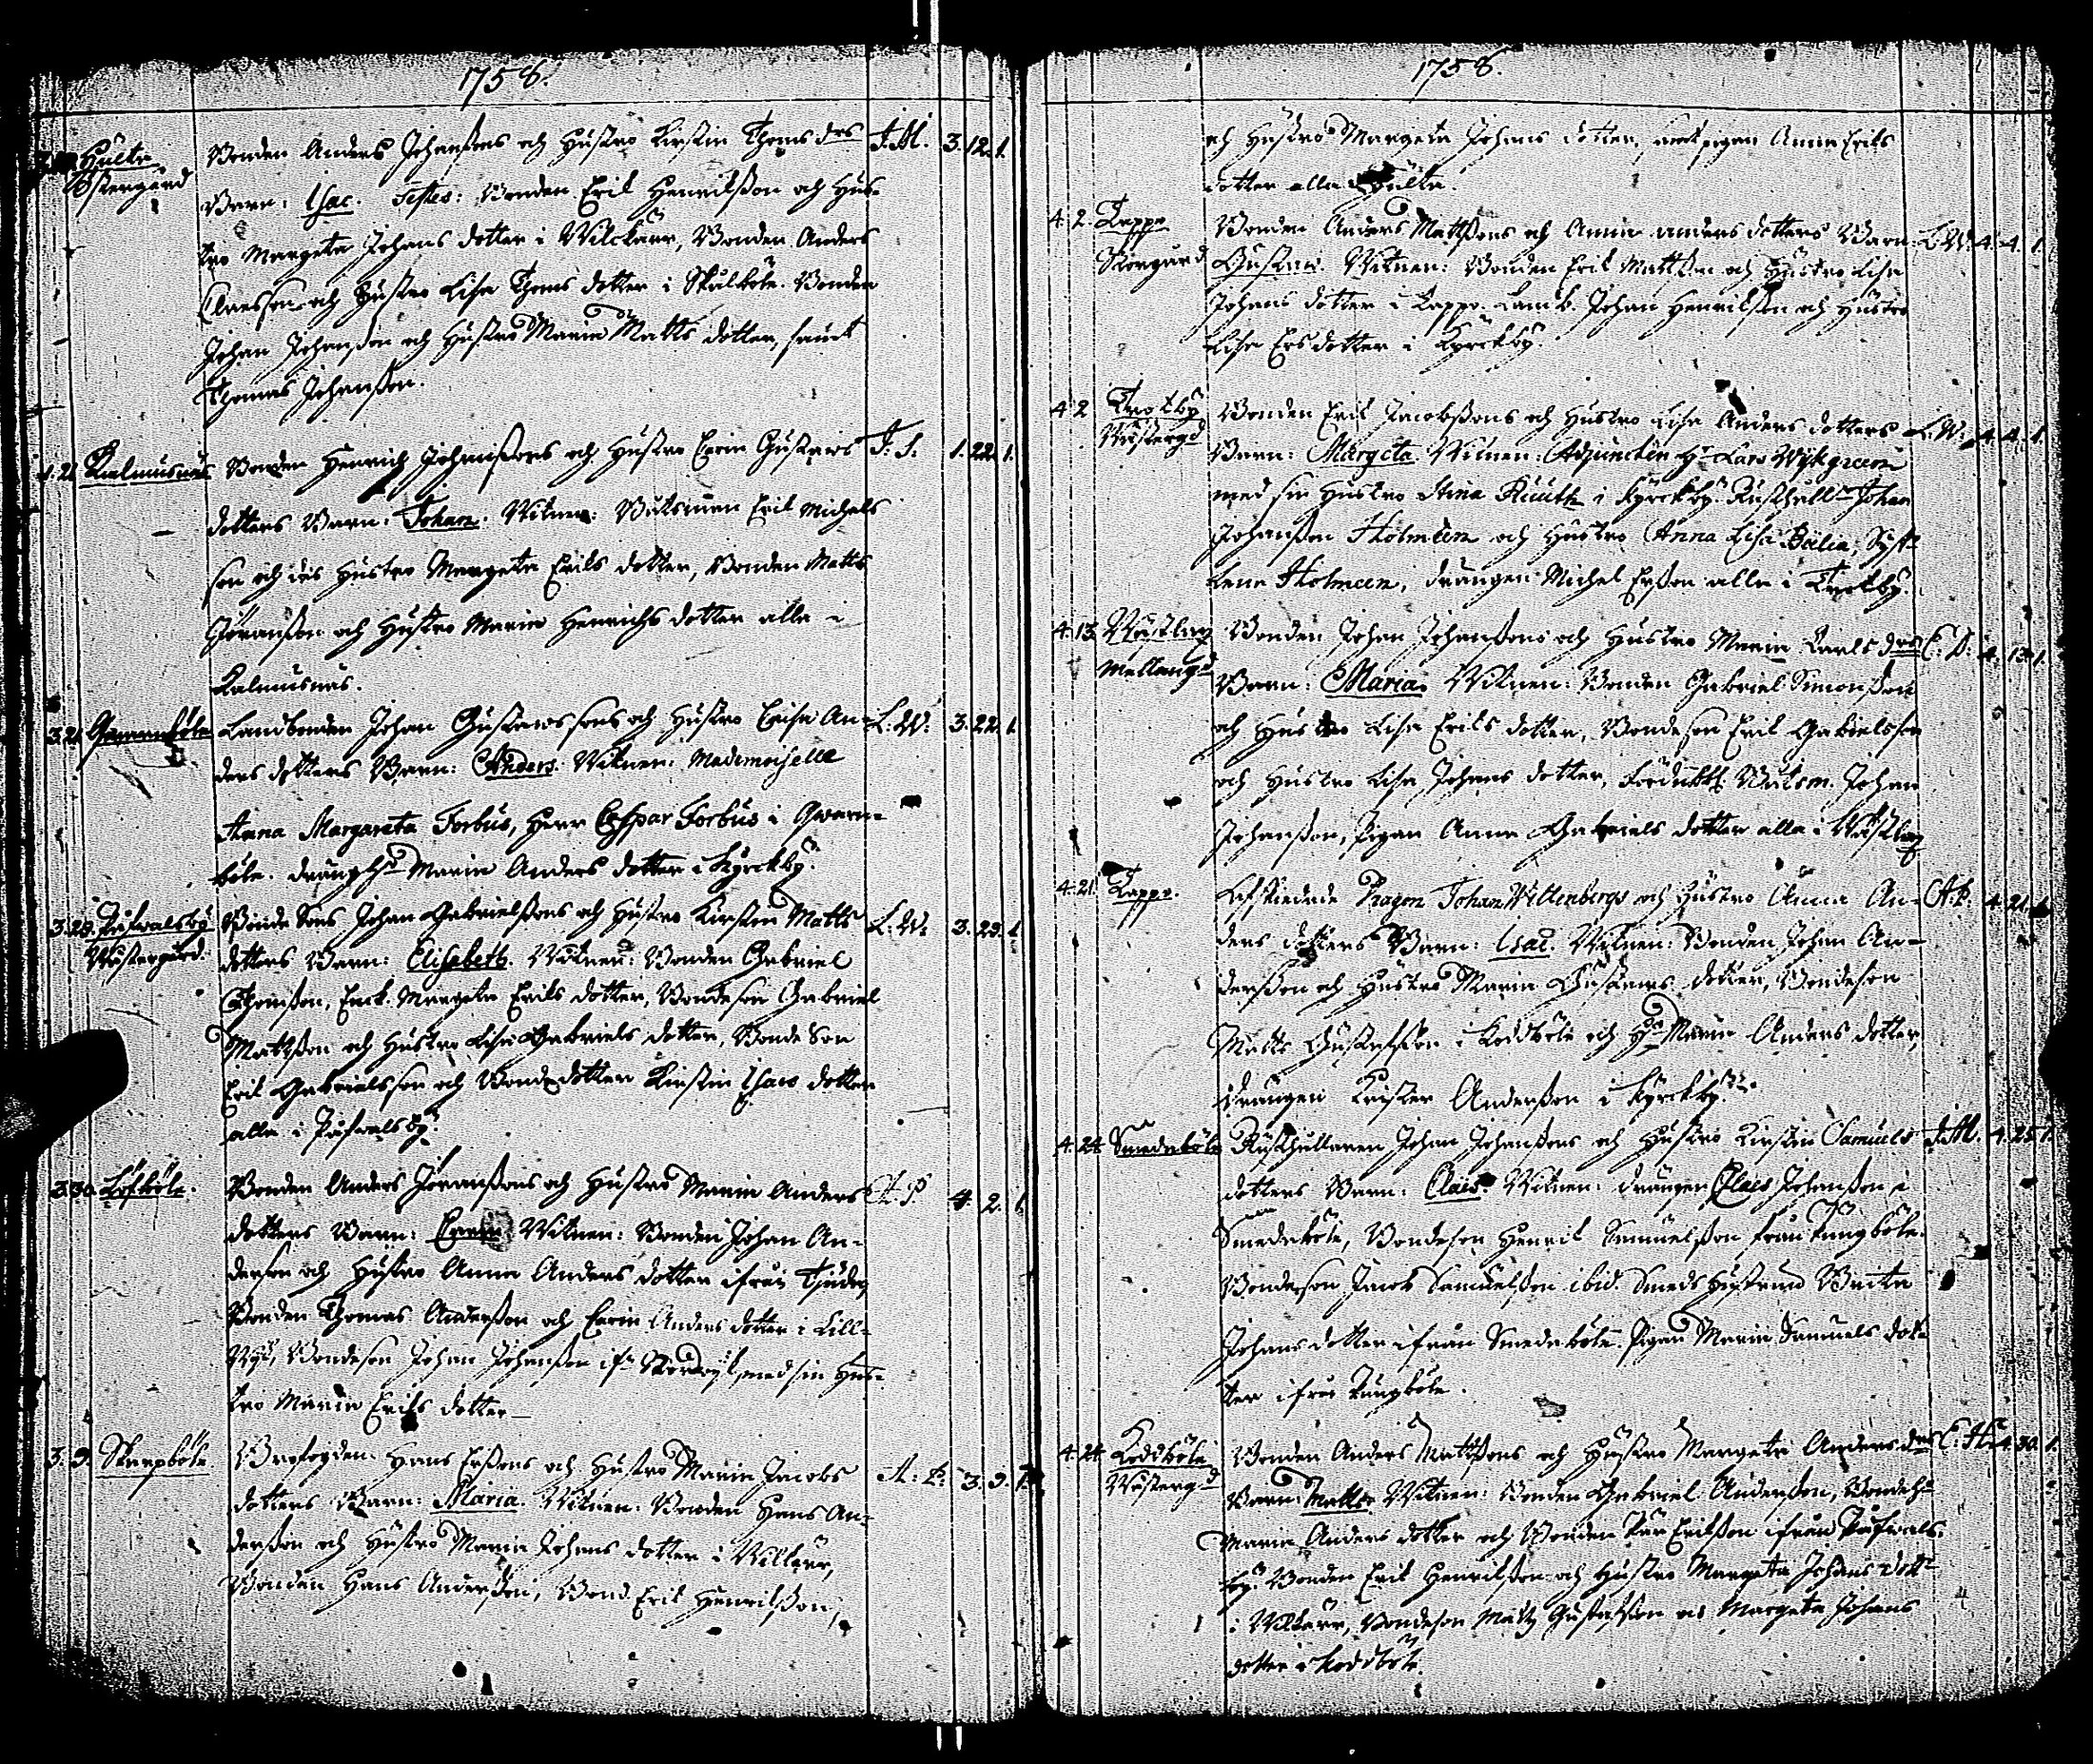 1758.
Hulta Bonden Anders Johanßons och Hustro Kirstin Thoms drs J.M. 3. 12. 1.
Östergård
Barn: Isac. Testes: Bonden Erik Henrikßon och Hus-
tro Margeta Johans dotter i Wilckärr, Bonden Anders
Claesson och Hustro Lisa Thoms dotter i Skålböle. Bonden
Johan Johanßon och Hustro Maria Matts dotter, samt
Thomas Johanßon.
1. 21 Kalmusnäs Bonden Henrich Johanßons och Hustro Carin Gustavs J. S. 1. 22. 1.
dotters Barn: Johan. Witnen: Båtsman Erik Michels
son och des Hustro Margeta Eriks dotter, Bonden Matts
Göranßon och Hustro Maria Henrichs dotter alla i
Kalmusnäs.
3. 21 Landbonden Johan Gustavssons och Hustro Caisa An- L. W. 3. 22. 1.
ders dotters Barn: Anders. Witnen: Mademoiselle
Anna Margareta Forbus, Herr Caspar Forbus i Gwarn-
böle. drängh Maria Anders dotter i Kyrckby.
3. 23. Påfwalsby Bonde Sons Johan Gabrielßons och Hustro Kirstin Matts L. W. 3. 23. 1.
Wästergård.
dotters Barn: Elisabeth. Witnen: Bonden Gabriel
Thomßon, Enck. Margeta Eriks dotter, Bondeson Gabriel
Mattßon och Hustro Lisa Gabriels dotter, Bonde Son
Erik Gabrielsson och Bondedotter Kirstin Isacs dotter
alla i Påfwalsby.
3. 30. Löfböle. Bonden Anders Jöranßons och Hustro Maria Anders 4. 2. 1.
dotters Barn: Carin Witnen: Bonden Johan An-
derson och Hustro Anna Anders dotter ifrån Tjuda
Bonden Thomas Anderßon och Carin Anders dotter i Lill-
Bondeson Johan Johanßon med sin Hus-
tro Maria Eriks dotter
3. 9. Skarpböle. Hans Erßons och Hustro Maria Jacobs 3. 9. 1.
dotters Barn: Maria. Witnen: Bonden Hans An-
derßon och Hustro Maria Johans dotter i Wilkärr,
Bonden Hans Anderßon, Bond. Erik Henrikßon,
1758.
och Hustro Margeta Johans dotter, samt pigan Anna Eriks
dotter alla i Hulta.
4. 2. Kappo Bonden Anders Mattßons och Anna Anders dotters Barn L. W. 4. 4. 1.
Storgård
Gustav. Witnen: Bonden Erik Mattßon och Hustro Lisa
Johans dotter i Kappo. Landb. Johan Henrikßon och Hustro
Lisa Ersdotter i Kyrckby.
4. 2 Trotby Bonden Erik Jacobßons och Hustro Lisa Anders dotters L. W. 4. 4. 1.
Wästergd
Barn: Margeta. Witnen: Adjuncten Hr Lars Wykgreen
med sin Hustro Stina Ruuth i Kyrckby. Rusthåll Johan
Johanßon Holmeen och Hustro Anna Lisa
Lena Holmeen, drängen Michel Erßon alla i Trotby.
4. 13. Wästlax Bonden Johan Johanßons och Hustro Maria Karls drs 4. 13. 1.
Mellangd
Barn: Maria. Witnen: Bonden Gabriel Simonßon
och Hustro Lisa Eriks dotter, Bondeson Erik Gabrielsson
och Hustro Lisa Johans dotter, Båtsm. Johan
Johanßon, Pigan Anna Gabriels dotter alla i Wästlax
4. 21. Kappo. Afskedade Dragon Johan Wittenbergs och Hustro Anna An- 4. 21.
ders dotters Barn: Isac. Witnen: Bonden Johan An-
derßon och Hustro Maria Gustavs dotter, Bondeson
Matts Gustafsson i Koddböle och Hu Maria Anders dotter,
drängen Krister Anderßon i Kyrckby.
4. 24 Smedsböle Rusthållaren Johan Johanßons och Hustro Kirstin Samuels J.M. 4. 25. 1.
dotters Barn: Claes. Witnen: drängen Claes Johanßon i
Smedsböle, Bondeson Henrik Samuelßon från Pungböle.
Bondeson Jacob Samuelßon ibid. Smeds Hustrun Brita
Johans dotter ifrån Smedsböle. Pigan Maria Samuels dot-
ter ifrån Pungböle.
4. 24. Koddböle Bonden Anders Mattßons och Hustro Margeta Anders drs 4. 30. 1.
Wästergd
Barn: Matts. Witnen: Bonden Gabriel Anderßon, Bondeh
Maria Anders dotter och Bonden Pär Erikßon ifrån Påfwals-
by. Bonden Erik Henrikßon och Hustro Margeta Johans dott
i Wilkärr, Bondeson Matts Gustafsson och Margeta Johans
dotter i Koddböle.